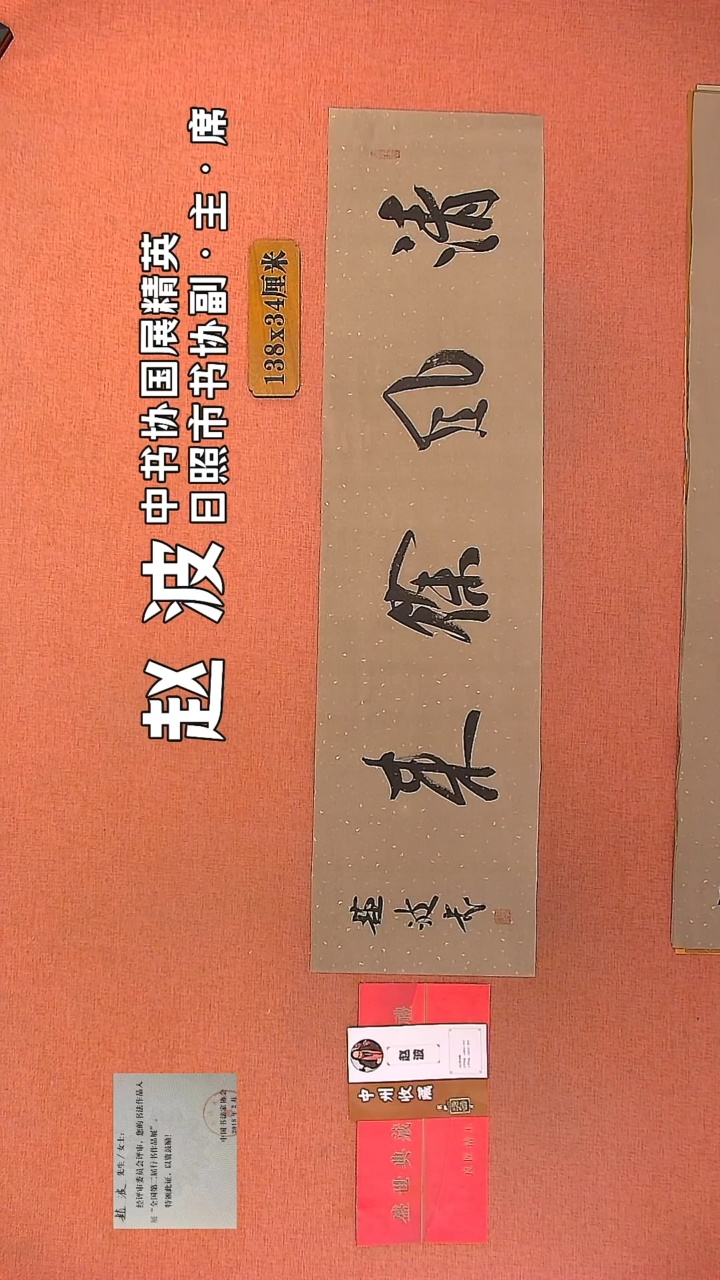 赵波
中书协国展精英
日照市书协副·主·席
138x34厘米
清风徐来
赵波书
赵波 先生/女士：
经评审委员会评审，您的书法作品入
展“全国第二届行书作品展”。
特颁此证，以资鼓励！
中国书法家协会
赵波
中州收藏
盛世典藏